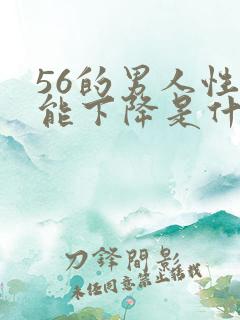 56的男人性
能下降是什
刀锋间影
未经同意禁止转载